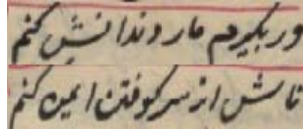 ور بگیرم مار دندانش کنم
تاش از سر کوفتن ایمن کنم